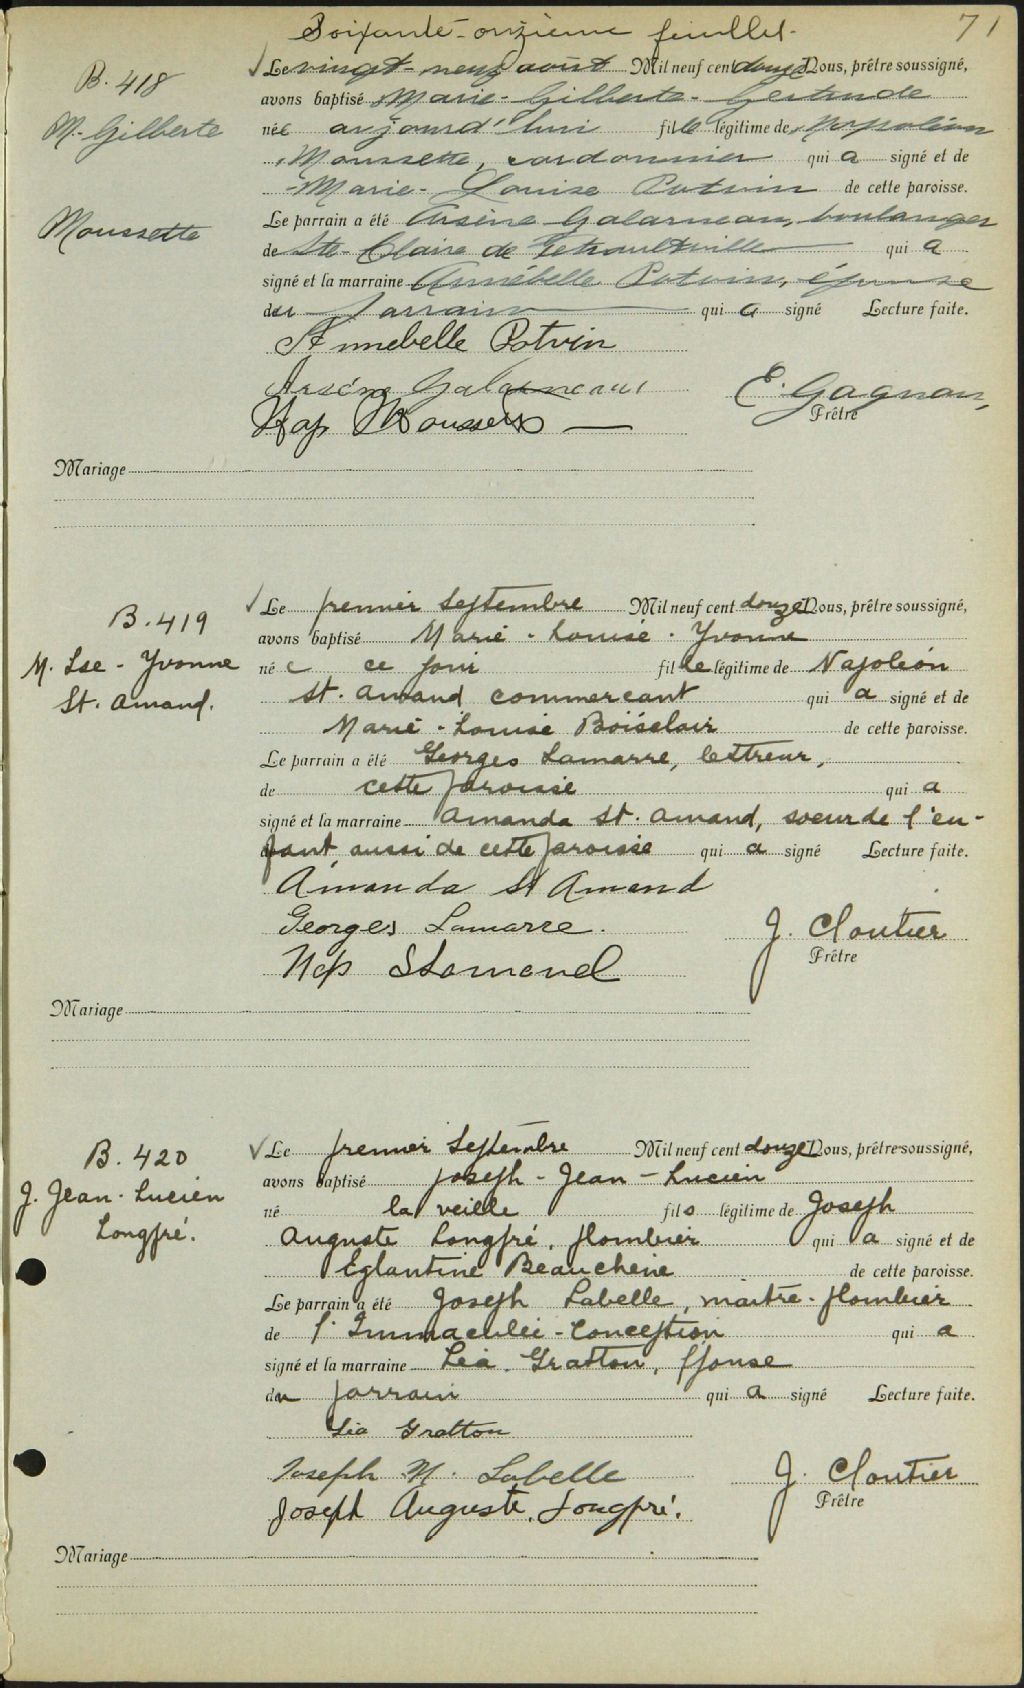 Soixante-onzième feuillet.
71
B. 418
M.-Gilberte
Moussette
Le vingt-neuf août Mil neuf cent douze Nous, prêtre soussigné,
avons baptisé Marie-Gilberte-Gertrude
née aujourd'hui fille légitime de Napoléon
Moussette, cordonnier qui a signé et de
Marie-Louise Potvin de cette paroisse.
Le parrain a été Arsène Galarneau, boulanger
de Ste-Claire de Tétraultville qui a
signé et la marraine Annébelle Potvin, épouse
du parrain qui a signé Lecture faite.
Annebelle Potvin
Arsène Galarneau
Nap Moussette
E. Gagnon,
Prêtre
Mariage
B. 419
M. Lse-Yvonne
St. Amand.
Le premier Septembre Mil neuf cent douze Nous, prêtre soussigné,
avons baptisé Marie-Louise-Yvonne
née ce jour fille légitime de Napoléon
St. Amand commercant qui a signé et de
Marie-Louise Boisclair de cette paroisse.
Le parrain a été Georges Lamarre, lettreur,
de cette paroisse qui a
signé et la marraine Amanda St. Amand, soeur de l'en-
fant, aussi de cette paroisse qui a signé Lecture faite.
Amanda St Amand
Georges Lamarre.
Nap StAmand
J. Cloutier
Prêtre
Mariage
B. 420
J. Jean-Lucien
Longpré.
Le premier Septembre Mil neuf cent douze Nous, prêtre soussigné,
avons baptisé Joseph-Jean-Lucien
né la veille fils légitime de Joseph
Auguste Longpré, plombier qui a signé et de
Eglantine Beauchène de cette paroisse.
Le parrain a été Joseph Labelle, maître-plombier
de l'Immaculée-Conception qui a
signé et la marraine Léa Gratton, épouse
du parrain qui a signé Lecture faite.
Léa Gratton
Joseph M. Labelle
Joseph Auguste Longpré.
J. Cloutier
Prêtre
Mariage